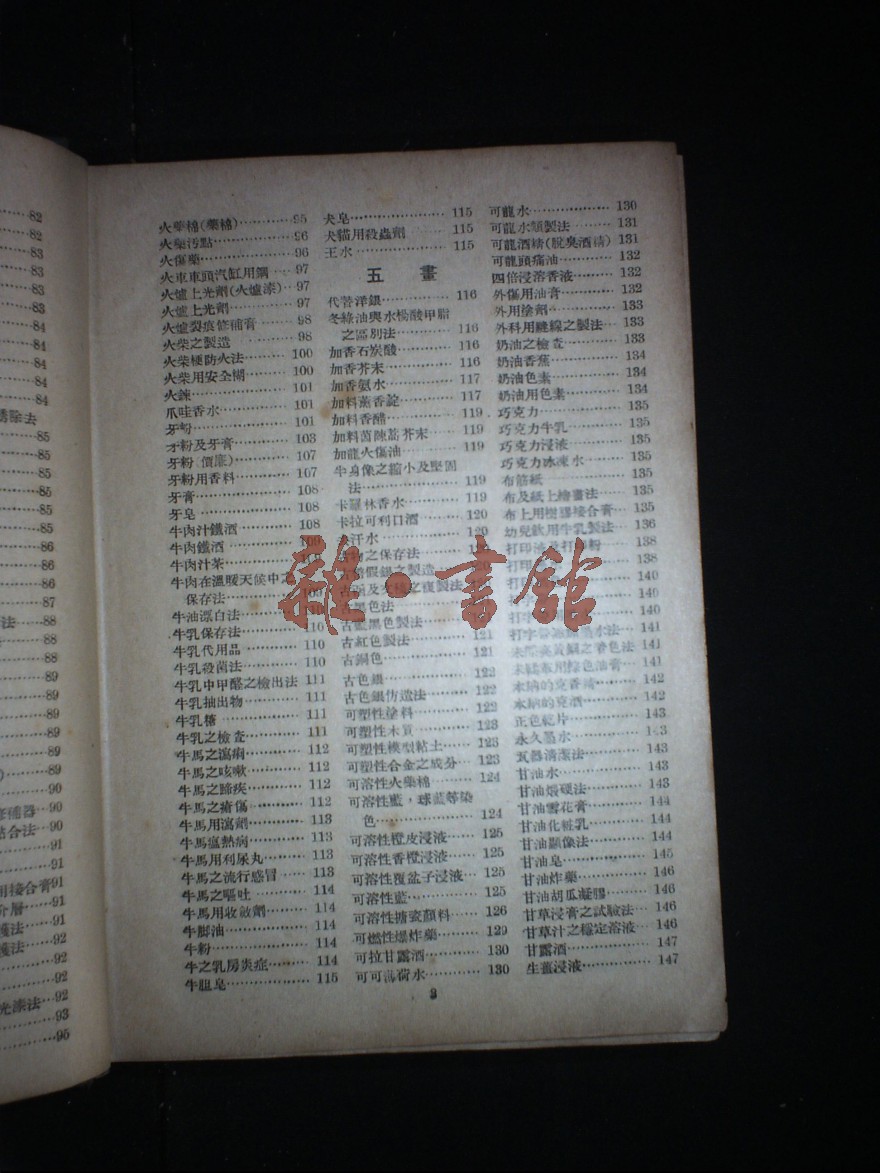 82
82
83
83
83
84
84
84
84
85
85
85
85
86
86
86
87
法……88
88
88
89
89
89
89
90
90
91
91
91
92
護法……92
92
光漆法…92
93
95
火藥棉(藥棉)…………95
火藥污點……………96
火傷藥………………96
火車車頭汽缸用鋼……97
火爐上光劑(火爐漆)…97
火爐上光劑…………97
火爐裂痕修補膏……98
火柴之製造…………98
火柴梗防火法………100
火柴用安全糊………100
火鍊…………………101
爪哇香水……………101
牙粉…………………101
牙粉及牙膏…………103
牙粉(價廉)…………107
牙粉用香料…………107
牙膏…………………108
牙皂…………………108
牛肉汁鐵酒…………108
牛肉鐵酒……………109
牛肉汁茶
牛肉在溫暖天候中之
保存法……………109
牛油漂白法…………110
牛乳保存法…………110
牛乳代用品…………110
牛乳殺菌法…………110
牛乳中甲醛之檢出法 111
牛乳抽出物…………111
牛乳糖………………111
牛乳之檢查…………111
牛馬之瀉痢…………112
牛馬之咳嗽…………112
牛馬之蹄疾…………112
牛馬之瘡傷…………112
牛馬用瀉劑…………113
牛馬瘟熱病…………113
牛馬用利尿丸………113
牛馬之流行感冒……113
牛馬之嘔吐…………114
牛馬用收斂劑………114
牛脚油………………114
牛粉…………………114
牛之乳房炎症………114
牛膽皂………………115
犬皂…………………115
犬貓用殺蟲劑………115
王水…………………115
五 畫
代替洋銀……………116
冬綠油與水楊酸甲脂
之區別法…………116
加香石炭酸…………116
加香芥末……………116
加香氨水……………117
加料薰香錠…………117
加料香醋……………119
加料茵陳蒿芥末……119
加龍火傷油…………119
半身像之縮小及堅固
法…………………119
卡羅林香水…………119
卡拉可利口酒………120
汗水…………………120
物之保存法…………120
假銀之製造
之複製法
古墨色法
古藍黑色製法
古紅色製法…………121
古銅色………………121
古色銀………………122
古色銀仿造法………122
可塑性塗料…………122
可塑性木質…………123
可塑性模型粘土……123
可塑性合金之成分…123
可溶性火藥棉………124
可溶性藍，球藍等染
色…………………124
可溶性橙皮浸液……125
可溶性香橙浸液……125
可溶性覆盆子浸液…125
可溶性藍……………125
可溶性搪瓷顏料……126
可燃性爆炸藥………129
可拉甘露酒…………130
可可薄荷水…………130
可龍水………………130
可龍水類製法………131
可龍酒精(脫臭酒精)131
可龍頭痛油…………132
四倍浸溶香液………132
外傷用油膏…………132
外用塗劑……………133
外科用縫線之製法…133
奶油之檢查…………133
奶油香蕉……………134
奶油色素……………134
奶油用色素…………134
巧克力………………135
巧克力牛乳…………135
巧克力浸液…………135
巧克力冰凍水………135
布筋紙………………135
布及紙上繪畫法……135
布上用樹膠接合膏…135
幼兒飲用牛乳製法…136
打印油及打印粉……138
打印……138
140
140
打字……水法…141
141
142
木……的克酒………142
正色乾片……………143
永久墨水……………143
瓦器清潔法…………143
甘油水………………143
甘油煨硬法…………143
甘油雪花膏…………144
甘油化粧乳…………144
甘油顯像法…………144
甘油皂………………145
甘油炸藥……………146
甘油胡瓜凝膠………146
甘草浸膏之試驗法…146
甘草汁之穩定溶液…146
甘露酒………………147
生薑浸液……………147
3
雜·書館